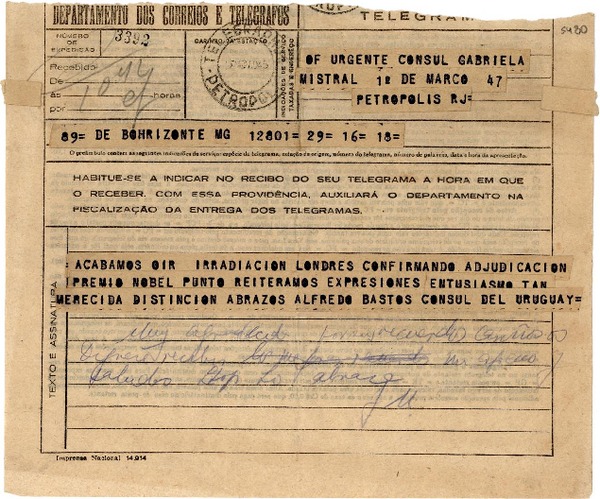 DEPARTAMENTO DOS CORREIOS E TELEGRAFOS
TELEGRAMA
5480
NÚMERO DE EXPEDIÇÃO
3392
CARIMBO DA ESTAÇÃO
INDICAÇÕES DE SERVIÇO TAXADAS E ENDEREÇO
Recebido
De
às horas
por
PETROPOLIS
OF URGENTE CONSUL GABRIELA
MISTRAL 1º DE MARCO 47
PETROPOLIS RJ=
89= DE BOHRIZONTE MG 12801= 29= 16= 18=
O preâmbulo contém as seguintes indicações de serviço: espécie do telegrama, estação de origem, número do telegrama, número de palavras, data e hora da apresentação.
HABITUE-SE A INDICAR NO RECIBO DO SEU TELEGRAMA A HORA EM QUE
O RECEBER. COM ESSA PROVIDÊNCIA, AUXILIARÁ O DEPARTAMENTO NA
FISCALIZAÇÃO DA ENTREGA DOS TELEGRAMAS.
TEXTO E ASSINATURA
ACABAMOS OIR IRRADIACION LONDRES CONFIRMANDO ADJUDICACION
PREMIO NOBEL PUNTO REITERAMOS EXPRESIONES ENTUSIASMO TAN
MERECIDA DISTINCION ABRAZOS ALFREDO BASTOS CONSUL DEL URUGUAY=
Muy
Saludos Stop La abraza
G M
Imprensa Nacional 14.914